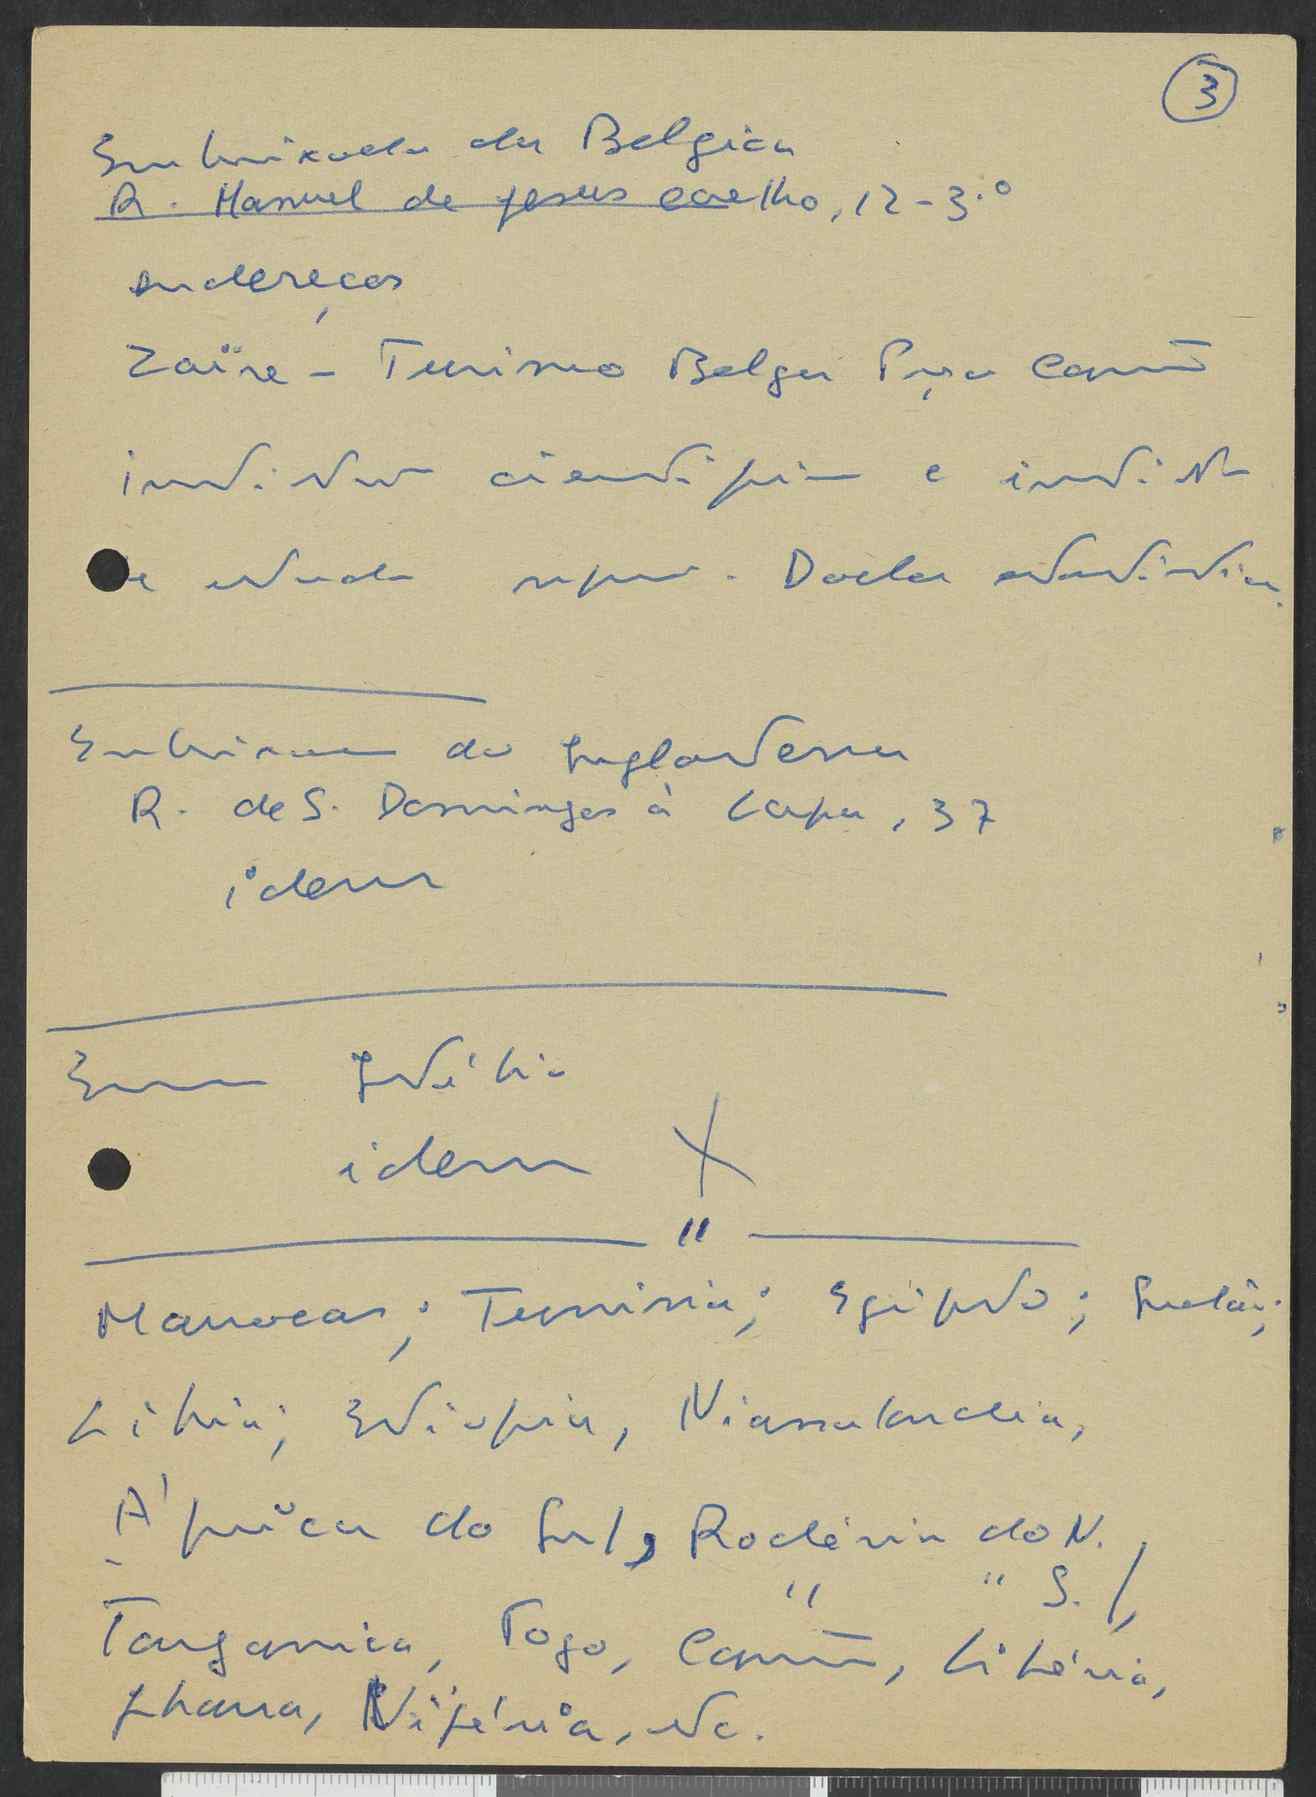 3
Embaixada da Belgica
R. Manuel de Jesus Coelho, 12-3.º
endereços
Zaïre - Turismo Belga Praça Camões
institutos científicos e instit
de estudos super. Dados estatísticos.
Embaixada da Inglaterra
R. de S. Domingos à Lapa, 37
idem
Emb Itália
idem X
"
Marrocos; Tunísia; Egipto; Sudão;
Líbia; Etiopia, Niassalandia,
África do Sul, Rodésia do N.,
" " S.,
Tanganica, Togo, Camarões, Libéria,
Ghana, Nigéria, etc.